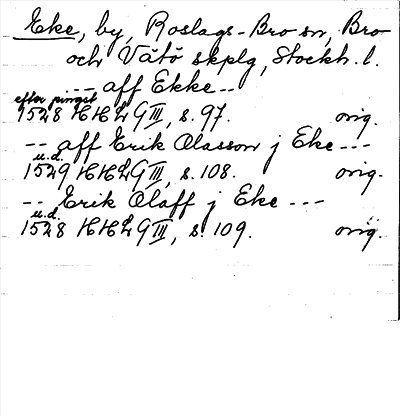 Eke, by, Roslags-Bro sn, Bro
och Vätö skplg, Stockh. l.
-- aff Ekke --
efter pingst
1528 HHL G III, s. 97. orig.
-- aff Erik Olasson j Eke ---
u.d.
1529 HHL G III, s. 108. orig.
-- Erik Olaff j Eke ---
u.d.
1528 HHL G III, s. 109. orig.